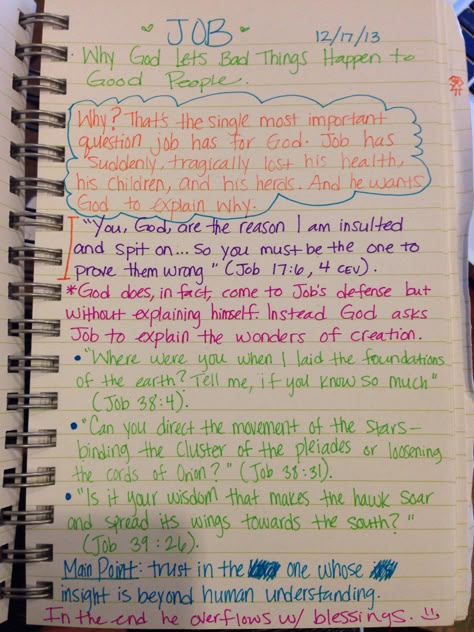 JOB
12/17/13
· Why God Lets Bad Things Happen to
Good People.
Why? That's the single most important
question job has for God. Job has
suddenly, tragically lost his health,
his children, and his herds. And he wants
God to explain why.
"You, God, are the reason I am insulted
and spit on... So you must be the one to
prove them wrong" (Job 17:6, 4 CEV).
*God does, in fact, come to Job's defense but
without explaining himself. Instead God asks
Job to explain the wonders of creation.
• "Where were you when I laid the foundations
of the earth? Tell me, if you know so much"
(Job 38:4).
• "Can you direct the movement of the stars—
binding the Cluster of the pleiades or loosening
the cords of Orion?" (Job 38:31).
• "Is it your wisdom that makes the hawk soar
and spread its wings towards the south?"
(Job 39:26).
Main Point: trust in the one whose
insight is beyond human understanding.
In the end he overflows w/ blessings.